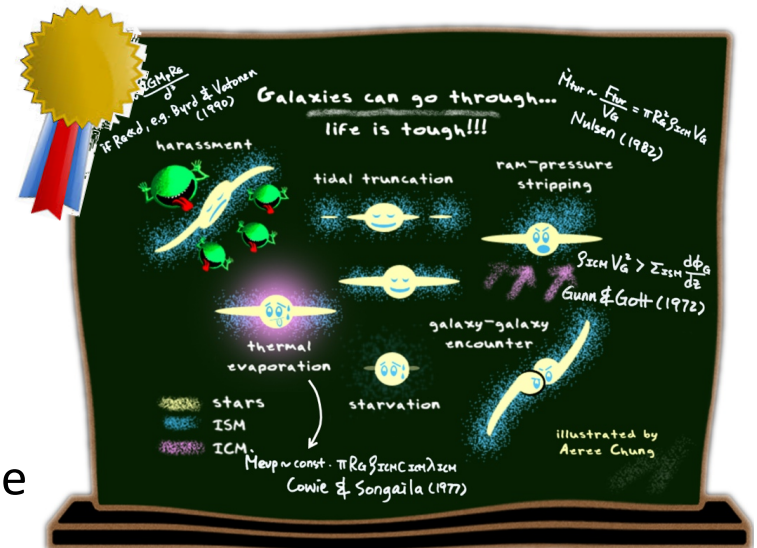 GMpRG
d³
if RG≪d, e.g. Byrd & Valtonen
(1990)
Galaxies can go through...
life is tough!!!
Ṁtur ~ Ftur/VG = πRG²ρICM VG
Nulsen (1982)
harassment
tidal truncation
ram-pressure
stripping
ρICM VG² > ΣISM dϕG/dz
Gunn & Gott (1972)
thermal
evaporation
galaxy-galaxy
encounter
starvation
stars
ISM
ICM
Ṁevp ~ const. πRG ρICM CICM λICM
Cowie & Songaila (1977)
illustrated by
Aeree Chung
e